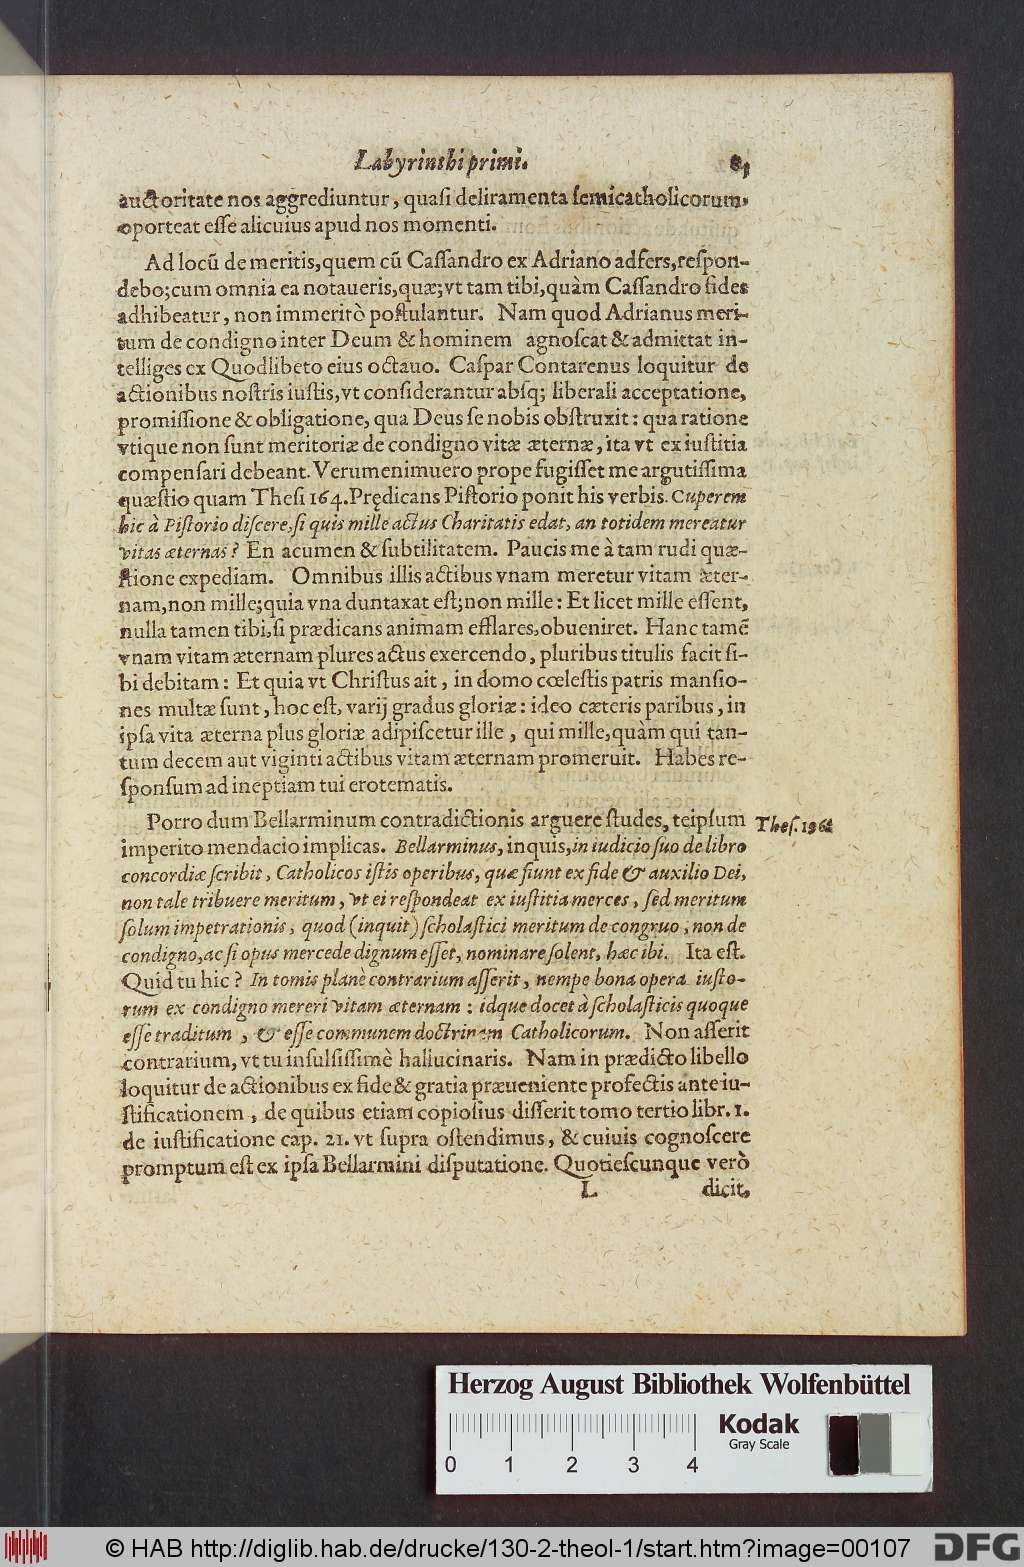 Labyrinthi primi. 81
auctoritate nos aggrediuntur, quasi deliramenta semicatholicorum
oporteat esse alicuius apud nos momenti.
Ad locū de meritis, quem cū Cassandro ex Adriano adfers, respon-
debo; cum omnia ea notaueris, quæ; vt tam tibi, quàm Cassandro fides
adhibeatur, non immeritò postulantur. Nam quod Adrianus meri-
tum de condigno inter Deum & hominem agnoscat & admittat in-
telliges ex Quodlibeto eius octauo. Caspar Contarenus loquitur de
actionibus nostris iustis, vt considerantur absq; liberali acceptatione,
promissione & obligatione, qua Deus se nobis obstruxit: qua ratione
vtique non sunt meritoriæ de condigno vitæ æternæ, ita vt ex iustitia
compensari debeant. Verumenimuero prope fugisset me argutissima
quæstio quam Thesi 164. Prędicans Pistorio ponit his verbis. Cuperem
hic à Pistorio discere, si quis mille actus Charitatis edat, an totidem mereatur
vitas æternas? En acumen & subtilitatem. Paucis me à tam rudi quæ-
stione expediam. Omnibus illis actibus vnam meretur vitam æter-
nam, non mille; quia vna duntaxat est; non mille: Et licet mille essent,
nulla tamen tibi, si prædicans animam efflares, obueniret. Hanc tamē
vnam vitam æternam plures actus exercendo, pluribus titulis facit si-
bi debitam: Et quia vt Christus ait, in domo cœlestis patris mansio-
nes multæ sunt, hoc est, varij gradus gloriæ: ideo cæteris paribus, in
ipsa vita æterna plus gloriæ adipiscetur ille, qui mille, quàm qui tan-
tum decem aut viginti actibus vitam æternam promeruit. Habes re-
sponsum ad ineptiam tui erotematis.
Porro dum Bellarminum contradictionis arguere studes, teipsum Thes. 196.
imperito mendacio implicas. Bellarminus, inquis, in iudicio suo de libro
concordiæ scribit, Catholicos istis operibus, quæ fiunt ex fide & auxilio Dei,
non tale tribuere meritum, vt ei respondeat ex iustitia merces, sed meritum
solum impetrationis, quod (inquit) scholastici meritum de congruo, non de
condigno, ac si opus mercede dignum esset, nominare solent, hæc ibi. Ita est.
Quid tu hic? In tomis planè contrarium asserit, nempe bona opera iusto-
rum ex condigno mereri vitam æternam: idque docet à scholasticis quoque
esse traditum, & esse communem doctrinam Catholicorum. Non asserit
contrarium, vt tu insulsissimè hallucinaris. Nam in prædicto libello
loquitur de actionibus ex fide & gratia præueniente profectis ante iu-
stificationem, de quibus etiam copiosius disserit tomo tertio libr. 1.
de iustificatione cap. 21. vt supra ostendimus, & cuiuis cognoscere
promptum est ex ipsa Bellarmini disputatione. Quotiescunque verò
L dicit,
Herzog August Bibliothek Wolfenbüttel
Kodak
Gray Scale
0 1 2 3 4
© HAB http://diglib.hab.de/drucke/130-2-theol-1/start.htm?image=00107
DFG